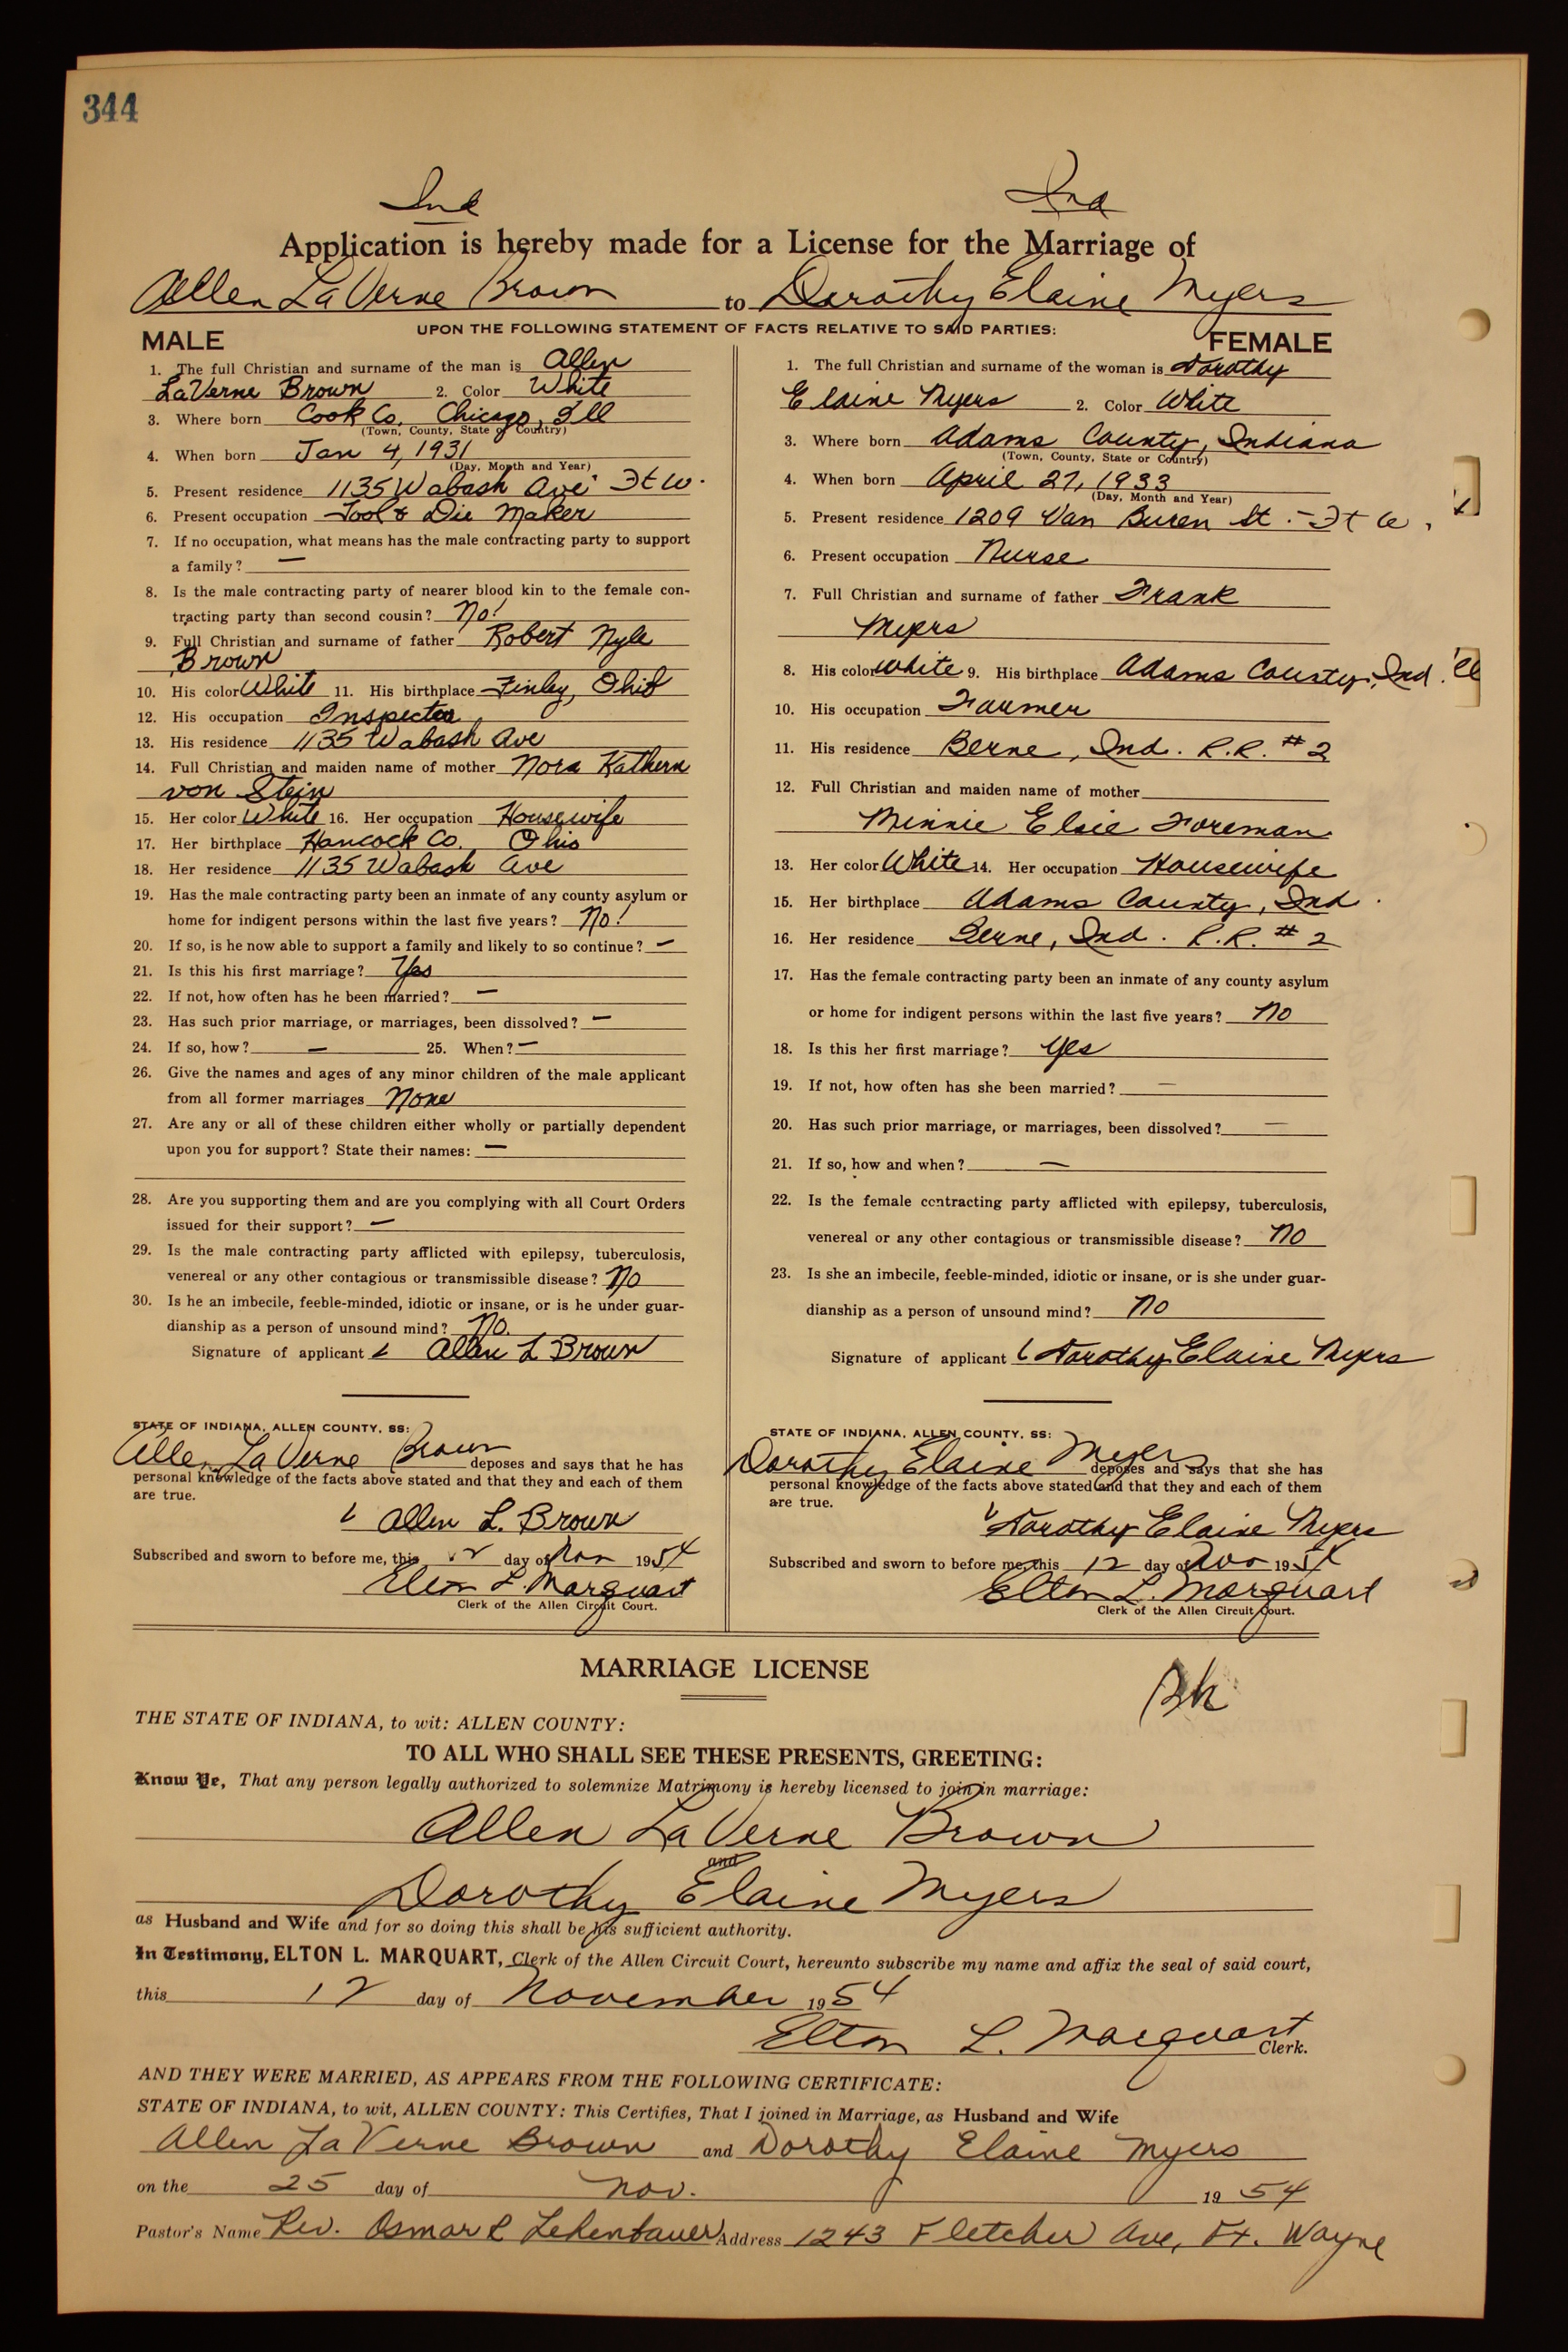 344
Ind Ind
Application is hereby made for a License for the Marriage of
Allen LaVerne Brown to Dorothy Elaine Myers
UPON THE FOLLOWING STATEMENT OF FACTS RELATIVE TO SAID PARTIES:
MALE
1. The full Christian and surname of the man is Allen
LaVerne Brown 2. Color White
3. Where born Cook Co. Chicago, Ill
(Town, County, State or Country)
4. When born Jan 4, 1931
(Day, Month and Year)
5. Present residence 1135 Wabash Ave Ft W.
6. Present occupation Tool & Die Maker
7. If no occupation, what means has the male contracting party to support
a family? —
8. Is the male contracting party of nearer blood kin to the female con-
tracting party than second cousin? No!
9. Full Christian and surname of father Robert Nyle
Brown
10. His color White 11. His birthplace Finley, Ohio
12. His occupation Inspector
13. His residence 1135 Wabash Ave
14. Full Christian and maiden name of mother Nora Kathern
von Stein
15. Her color White 16. Her occupation Housewife
17. Her birthplace Hancock Co. Ohio
18. Her residence 1135 Wabash Ave
19. Has the male contracting party been an inmate of any county asylum or
home for indigent persons within the last five years? No!
20. If so, is he now able to support a family and likely to so continue? —
21. Is this his first marriage? Yes
22. If not, how often has he been married? —
23. Has such prior marriage, or marriages, been dissolved? —
24. If so, how? — 25. When? —
26. Give the names and ages of any minor children of the male applicant
from all former marriages None
27. Are any or all of these children either wholly or partially dependent
upon you for support? State their names: —
28. Are you supporting them and are you complying with all Court Orders
issued for their support? —
29. Is the male contracting party afflicted with epilepsy, tuberculosis,
venereal or any other contagious or transmissible disease? No
30. Is he an imbecile, feeble-minded, idiotic or insane, or is he under guar-
dianship as a person of unsound mind? No.
Signature of applicant Allen L Brown
STATE OF INDIANA, ALLEN COUNTY, SS:
Allen LaVerne Brown deposes and says that he has
personal knowledge of the facts above stated and that they and each of them
are true.
Allen L. Brown
Subscribed and sworn to before me, this 12 day of Nov 1954
Elton L. Marquart
Clerk of the Allen Circuit Court.
FEMALE
1. The full Christian and surname of the woman is Dorothy
Elaine Myers 2. Color White
3. Where born Adams County, Indiana
(Town, County, State or Country)
4. When born April 27, 1933
(Day, Month and Year)
5. Present residence 1209 Van Buren St. - Ft W.
6. Present occupation Nurse
7. Full Christian and surname of father Frank
Myers
8. His color White 9. His birthplace Adams County, Ind.
10. His occupation Farmer
11. His residence Berne, Ind. R.R. #2
12. Full Christian and maiden name of mother
Minnie Elsie Foreman
13. Her color White 14. Her occupation Housewife
15. Her birthplace Adams County, Ind.
16. Her residence Berne, Ind. R.R. #2
17. Has the female contracting party been an inmate of any county asylum
or home for indigent persons within the last five years? No
18. Is this her first marriage? Yes
19. If not, how often has she been married? —
20. Has such prior marriage, or marriages, been dissolved? —
21. If so, how and when? —
22. Is the female contracting party afflicted with epilepsy, tuberculosis,
venereal or any other contagious or transmissible disease? No
23. Is she an imbecile, feeble-minded, idiotic or insane, or is she under guar-
dianship as a person of unsound mind? No
Signature of applicant Dorothy Elaine Myers
STATE OF INDIANA, ALLEN COUNTY, SS:
Dorothy Elaine Myers deposes and says that she has
personal knowledge of the facts above stated and that they and each of them
are true.
Dorothy Elaine Myers
Subscribed and sworn to before me, this 12 day of Nov 1954
Elton L. Marquart
Clerk of the Allen Circuit Court.
MARRIAGE LICENSE
THE STATE OF INDIANA, to wit: ALLEN COUNTY:
TO ALL WHO SHALL SEE THESE PRESENTS, GREETING:
Know Ye, That any person legally authorized to solemnize Matrimony is hereby licensed to join in marriage:
Allen LaVerne Brown
and
Dorothy Elaine Myers
as Husband and Wife and for so doing this shall be his sufficient authority.
In Testimony, ELTON L. MARQUART, Clerk of the Allen Circuit Court, hereunto subscribe my name and affix the seal of said court,
this 12 day of November 1954
Elton L. Marquart
Clerk.
AND THEY WERE MARRIED, AS APPEARS FROM THE FOLLOWING CERTIFICATE:
STATE OF INDIANA, to wit, ALLEN COUNTY: This Certifies, That I joined in Marriage, as Husband and Wife
Allen LaVerne Brown and Dorothy Elaine Myers
on the 25 day of Nov. 1954
Pastor's Name Rev. Osmar Lehenbauer Address 1243 Fletcher Ave, Ft. Wayne